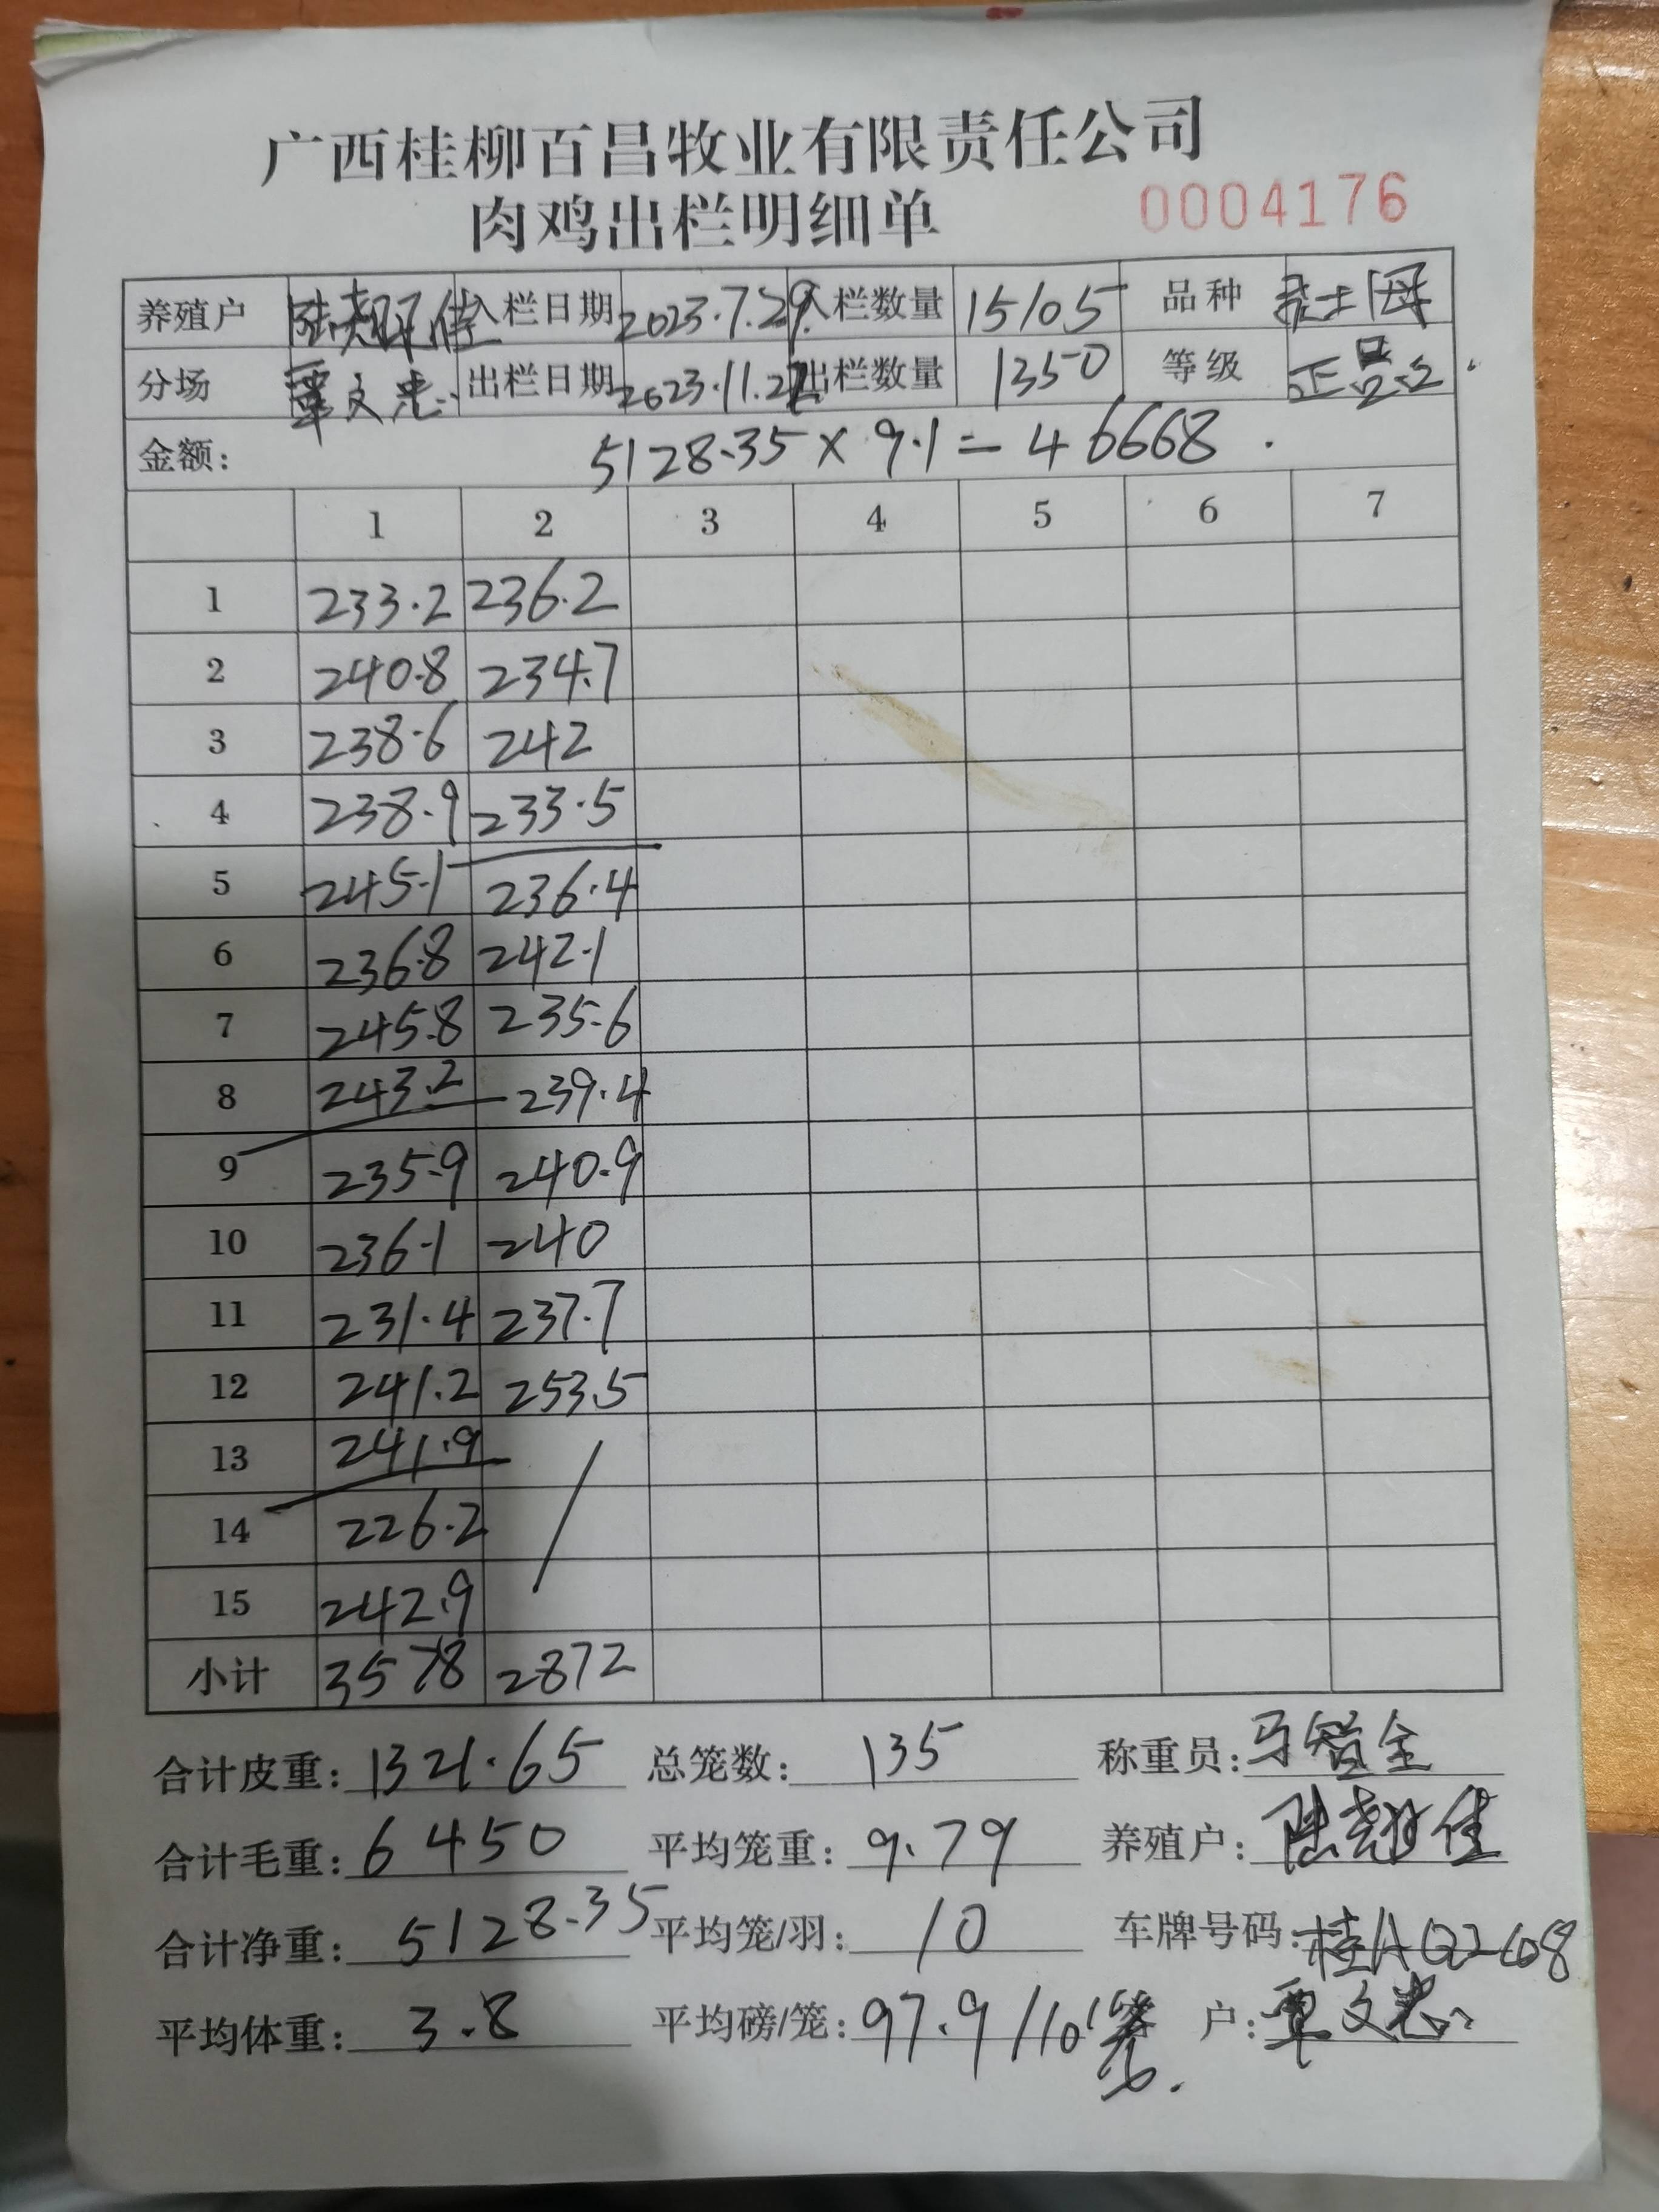 广西桂柳百昌牧业有限责任公司
肉鸡出栏明细单 0004176
养殖户 陆翘佳 入栏日期 2023.7.29. 入栏数量 15105 品种 土
分场 覃文忠 出栏日期 2023.11.22 出栏数量 1350 等级 正品
金额: 5128.35 × 9.1 = 46668.
1 2 3 4 5 6 7
1 233.2 236.2
2 240.8 234.7
3 238.6 242
4 238.9 233.5
5 245.1 236.4
6 236.8 242.1
7 245.8 235.6
8 243.2 239.4
9 235.9 240.9
10 236.1 240
11 231.4 237.7
12 241.2 253.5
13 241.9
14 226.2
15 242.9
小计 3578 2872
合计皮重: 1321.65 总笼数: 135 称重员: 马智全
合计毛重: 6450 平均笼重: 9.79 养殖户: 陆翘佳
合计净重: 5128.35 平均笼/羽: 10 车牌号码: 桂AQ2608
平均体重: 3.8 平均磅/笼: 97.9/10笼. 户: 覃文忠